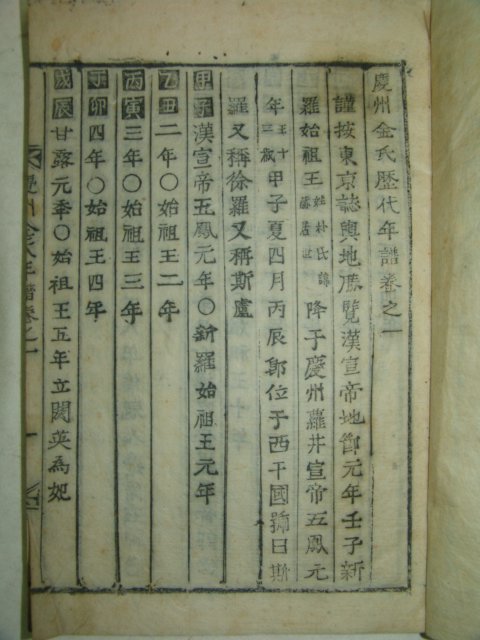 慶州金氏歷代年譜卷之一
謹按東京誌輿地勝覽漢宣帝地節元年壬子新
羅始祖王姓朴氏諱赫居世降于慶州羅井宣帝五鳳元
年王十三歲甲子夏四月丙辰卽位于西干國號曰斯
羅又稱徐羅又稱斯盧
甲子漢宣帝五鳳元年〇新羅始祖王元年
乙丑二年〇始祖王二年
丙寅三年〇始祖王三年
丁卯四年〇始祖王四年
戊辰甘露元年〇始祖王五年立閼英爲妃